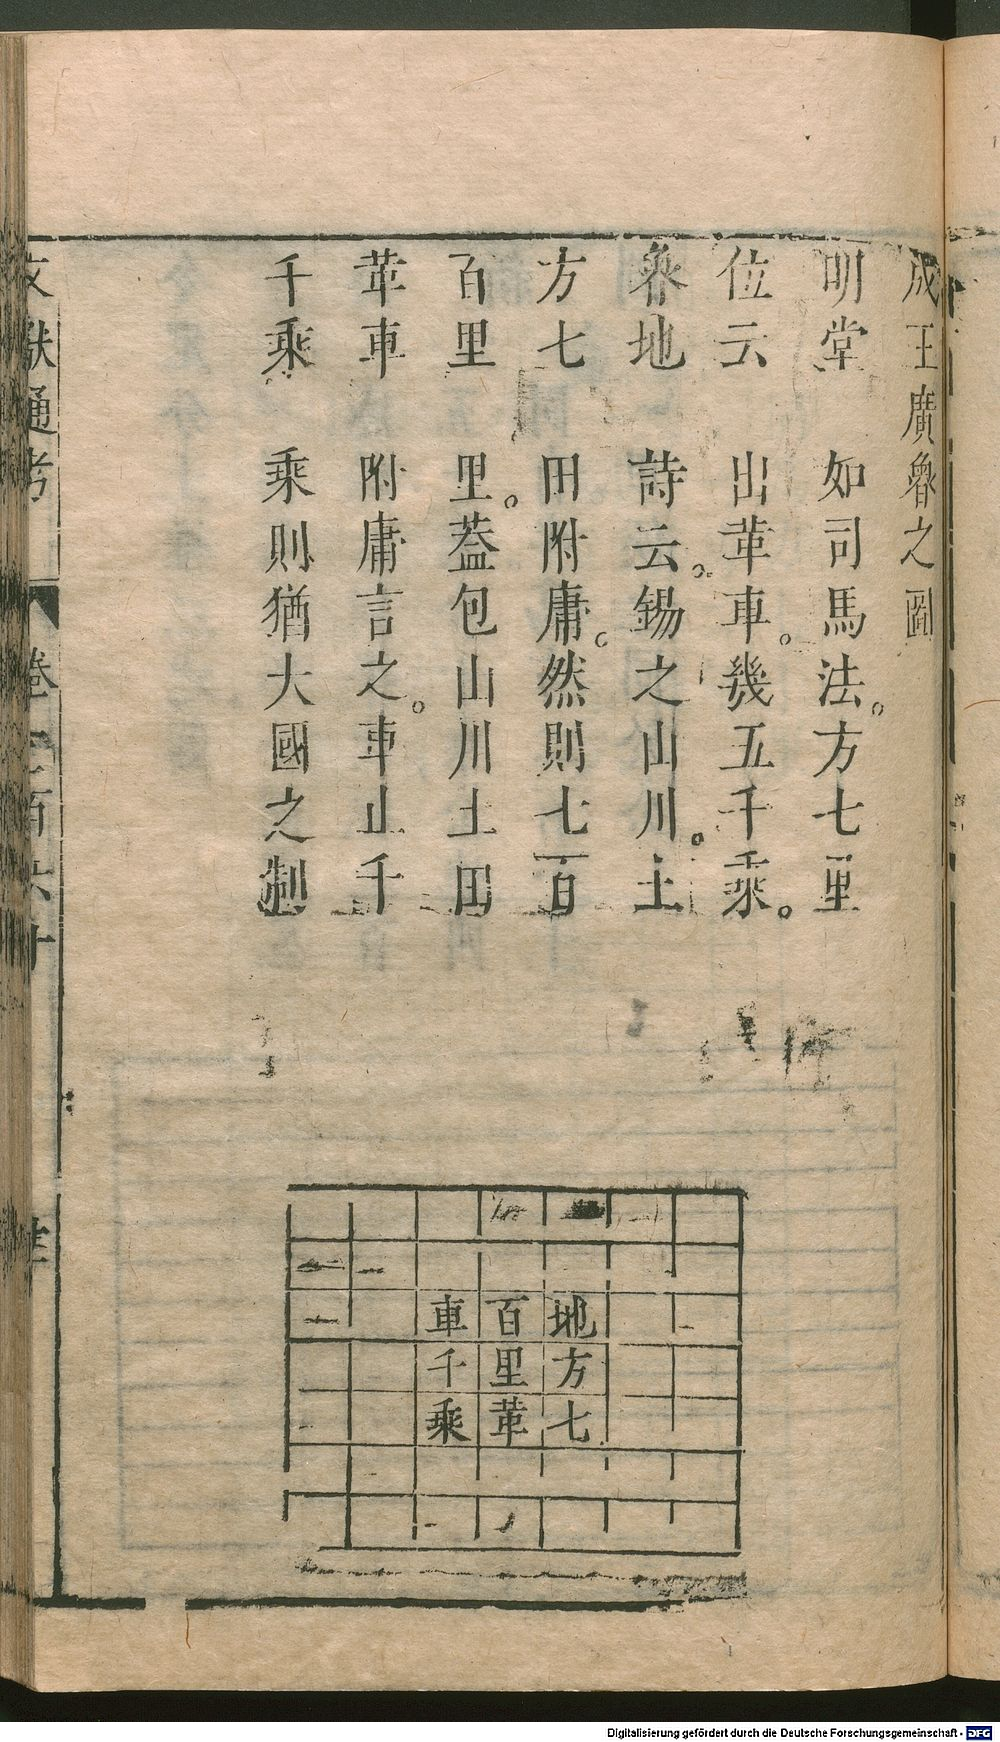 成王廣魯之圖
明堂
位云
魯地
方七
百里
革車
千乘
如司馬法。方七里
出革車。幾五千乘。
詩云。錫之山川。土
田附庸。然則七百
里。蓋包山川土田
附庸言之。車止千
乘則猶大國之制
地方七
百里革
車千乘
文獻通考
卷二百六十
Digitalisierung gefördert durch die Deutsche Forschungsgemeinschaft - DFG